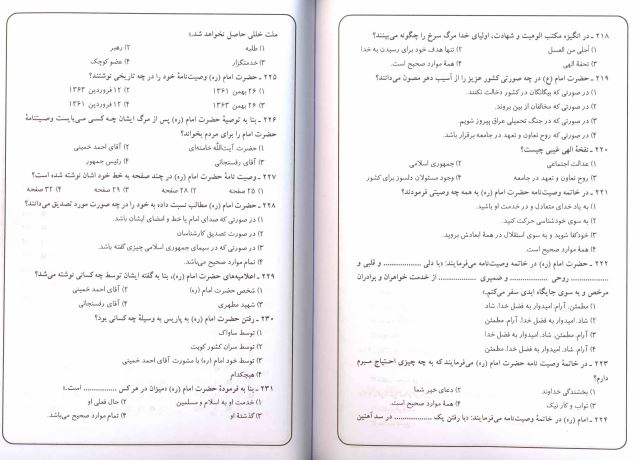 ۲۱۸ ـ در انگیزه مکتب الوهیت و شهادت، اولیای خدا مرگ سرخ را چگونه می‌بینند؟
۱) أحلی من العسل ۲) تنها هدف خود برای رسیدن به خدا
۳) تحفة الهی ۴) همهٔ موارد صحیح است.
۲۱۹ ـ حضرت امام (ع) در چه صورتی کشور عزیز را از آسیب دهر مصون می‌دانند؟
۱) در صورتی که بیگانگان در کشور دخالت نکنند.
۲) در صورتی که مخالفان از بین بروند.
۳) در صورتی که در جنگ تحمیلی عراق پیروز شویم.
۴) در صورتی که روح تعاون و تعهد در جامعه برقرار باشد.
۲۲۰ ـ نفخهٔ الهی غیبی چیست؟
۱) عدالت اجتماعی ۲) جمهوری اسلامی
۳) روح تعاون و تعهد در جامعه ۴) وجود مسئولان دلسوز برای کشور
۲۲۱ ـ در خاتمه وصیت‌نامه حضرت امام (ره) به همه چه وصیتی فرمودند؟
۱) به یاد خدای متعادل و در خدمت او باشید.
۲) به سوی خودشناسی حرکت کنید.
۳) خودکفا شوید و به سوی استقلال در همهٔ ابعادش بروید.
۴) همهٔ موارد صحیح است.
۲۲۲ ـ حضرت امام (ره) در خاتمه وصیت‌نامه می‌فرمایند: «با دلی ................ و قلبی و
................ روحی ................ و ضمیری ................ از خدمت خواهران و برادران
مرخص و به سوی جایگاه ابدی سفر می‌کنم.»
۱) مطمئن. آرام. امیدوار به فضل خدا. شاد
۲) شاد. امیدوار به فضل خدا. آرام. مطمئن
۳) آرام. مطمئن. شاد. امیدوار به فضل خدا
۴) شاد. امیدوار به فضل خدا. آرام. مطمئن
۲۲۳ ـ در خاتمهٔ وصیت نامه حضرت امام (ره) می‌فرمایند که به چه چیزی احتیاج مبرم
دارم؟
۱) بخشندگی خداوند ۲) دعای خیر شما
۳) ثواب و کار نیک ۴) همهٔ موارد صحیح است.
۲۲۴ ـ امام (ره) در خاتمهٔ وصیت‌نامه می‌فرمایند: «با رفتن یک ................ در سد آهنین
ملت خللی حاصل نخواهد شد.»
۱) طلبه ۲) رهبر
۳) خدمتگزار ۴) عضو کوچک
۲۲۵ ـ حضرت امام (ره) وصیت‌نامهٔ خود را در چه تاریخی نوشتند؟
۱) ۲۶ بهمن ۱۳۶۱ ۲) ۱۲ فروردین ۱۳۶۳
۳) ۲۶ بهمن ۱۳۶۳ ۴) ۱۲ فروردین ۱۳۶۱
۲۲۶ ـ بنا به توصیهٔ حضرت امام (ره) پس از مرگ ایشان چه کسی می‌بایست وصیتنامهٔ
حضرت امام را برای مردم بخواند؟
۱) حضرت آیت‌اللّه خامنه‌ای ۲) آقای احمد خمینی
۳) آقای رفسنجانی ۴) رئیس جمهور
۲۲۷ ـ وصیت نامهٔ حضرت امام (ره) در چند صفحه به خط خود اشان نوشته شده است؟
۱) ۲۵ صفحه ۲) ۲۸ صفحه ۳) ۲۹ صفحه ۴) ۳۲ صفحه
۲۲۸ ـ حضرت امام (ره) مطالب نسبت داده به خود را در چه صورت مورد تصدیق می‌دانند؟
۱) در صورتی که صدای امام یا خط و امضای ایشان باشد.
۲) در صورت تصدیق کارشناسان
۳) در صورتی که در سیمای جمهوری اسلامی چیزی گفته باشد.
۴) تمام موارد صحیح می‌باشد.
۲۲۹ ـ اعلامیه‌های حضرت امام (ره)، بنا به گفته ایشان توسط چه کسانی نوشته می‌شد؟
۱) شخص حضرت امام (ره) ۲) آقای احمد خمینی
۳) شهید مطهری ۴) آقای رفسنجانی
۲۳۰ ـ رفتن حضرت امام (ره) به پاریس به وسیلهٔ چه کسانی بود؟
۱) توسط ساواک
۲) توسط سران کشور کویت
۳) توسط خود امام (ره) با مشورت آقای احمد خمینی
۴) هیچکدام
۲۳۱ ـ بنا به فرمودهٔ حضرت امام (ره) «میزان در هر کس ................ است.»
۱) خدمت او به اسلام و مسلمین ۲) حال فعلی او
۳) گذشتهٔ او ۴) تمام موارد صحیح می‌باشد.